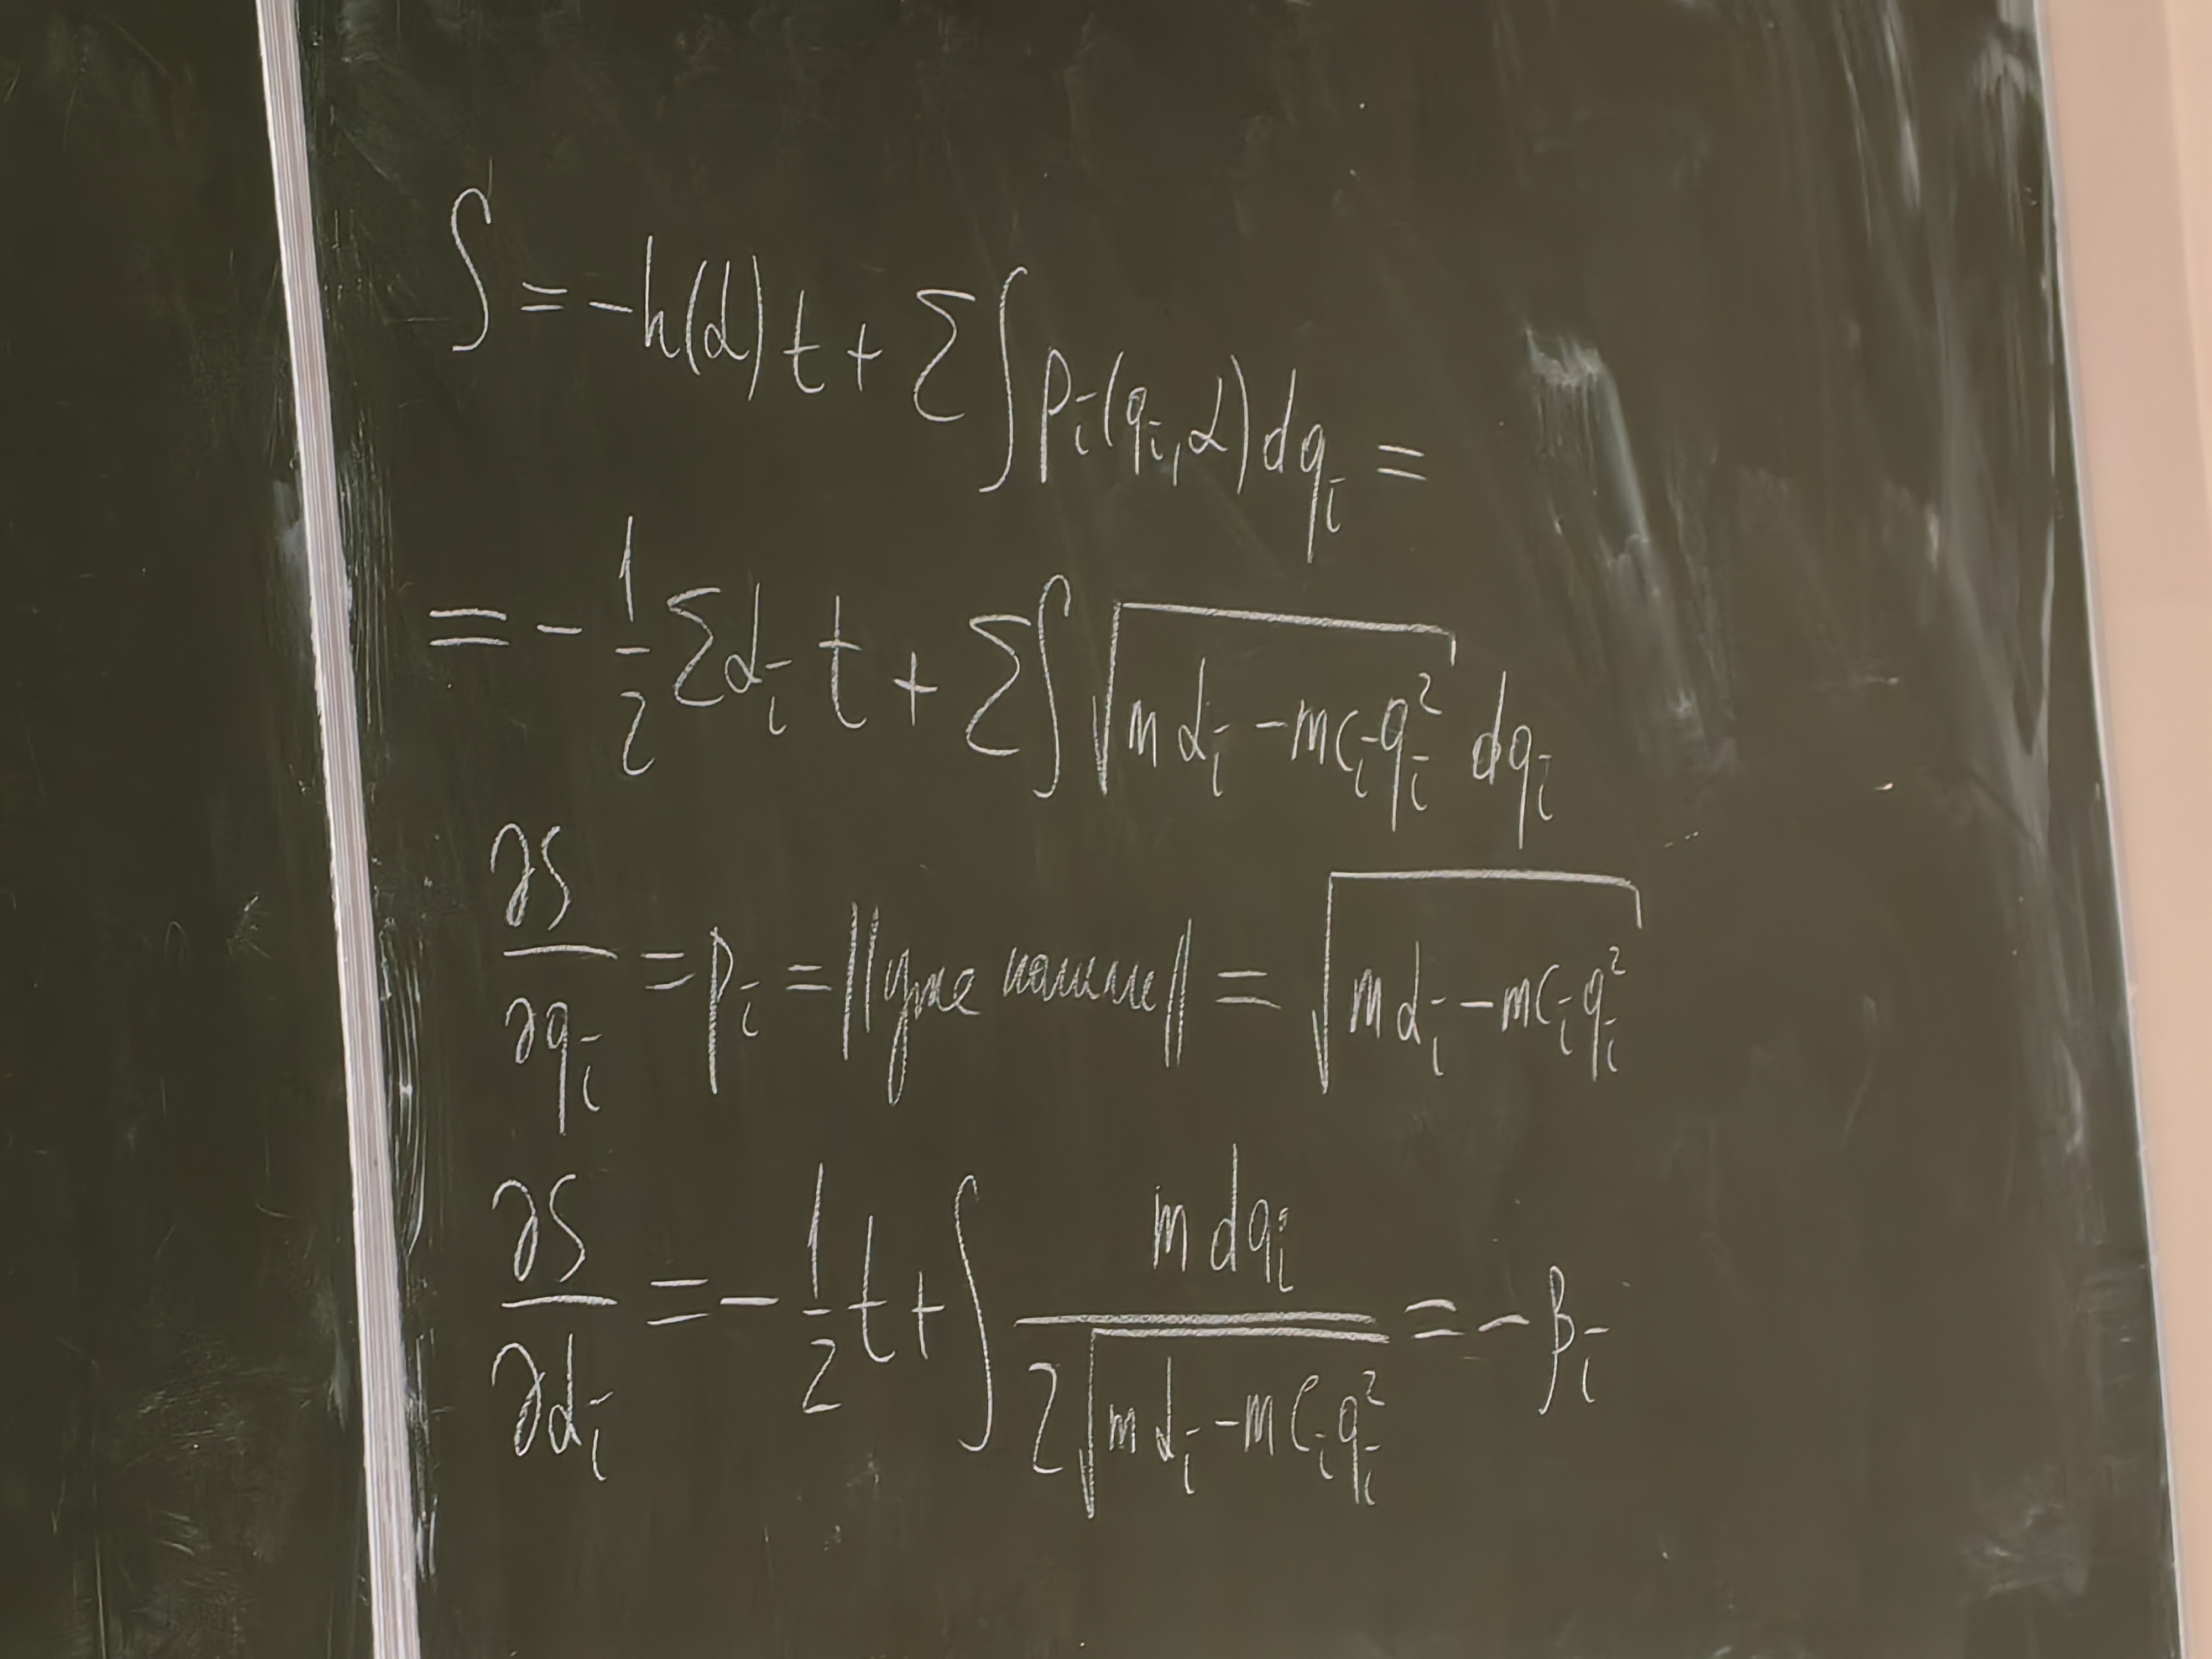 S = -h(α)t + Σ∫p_i(q_i, α)dq_i =
= -1/2 Σα_i t + Σ∫√(mα_i - mc_i q_i^2) dq_i
∂S/∂q_i = p_i = ||уже нашли|| = √(mα_i - mc_i q_i^2)
∂S/∂α_i = -1/2 t + ∫ m dq_i / (2√(mα_i - mc_i q_i^2)) = -β_i